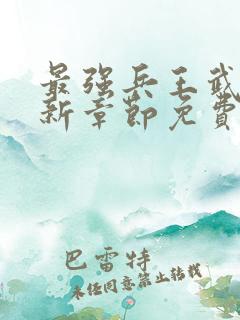 最强兵王武
新章节免費
巴雷特
未经同意禁止转载